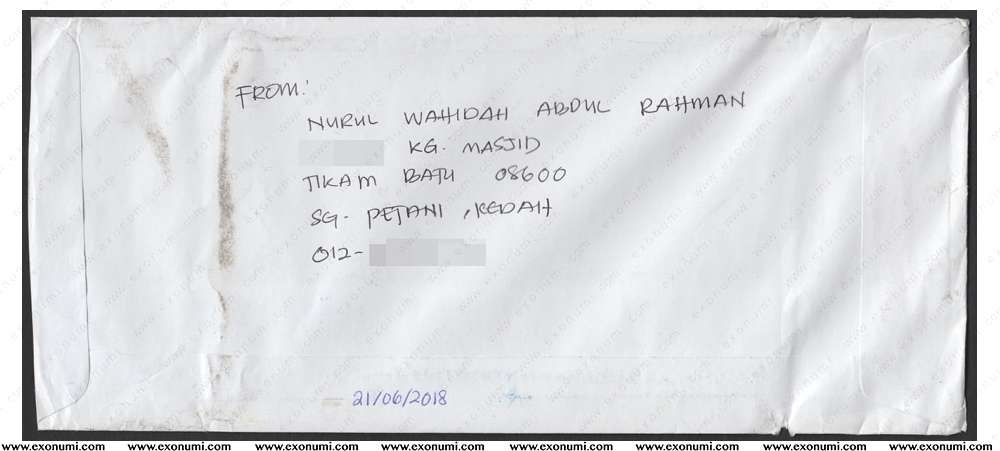 FROM:
NURUL WAHIDAH ABDUL RAHMAN
KG. MASJID
TIKAM BATU 08600
SG. PETANI, KEDAH
012-
21/06/2018
www.exonumi.com www.exonumi.com www.exonumi.com www.exonumi.com www.exonumi.com www.exonumi.com www.exonumi.com www.exonumi.com